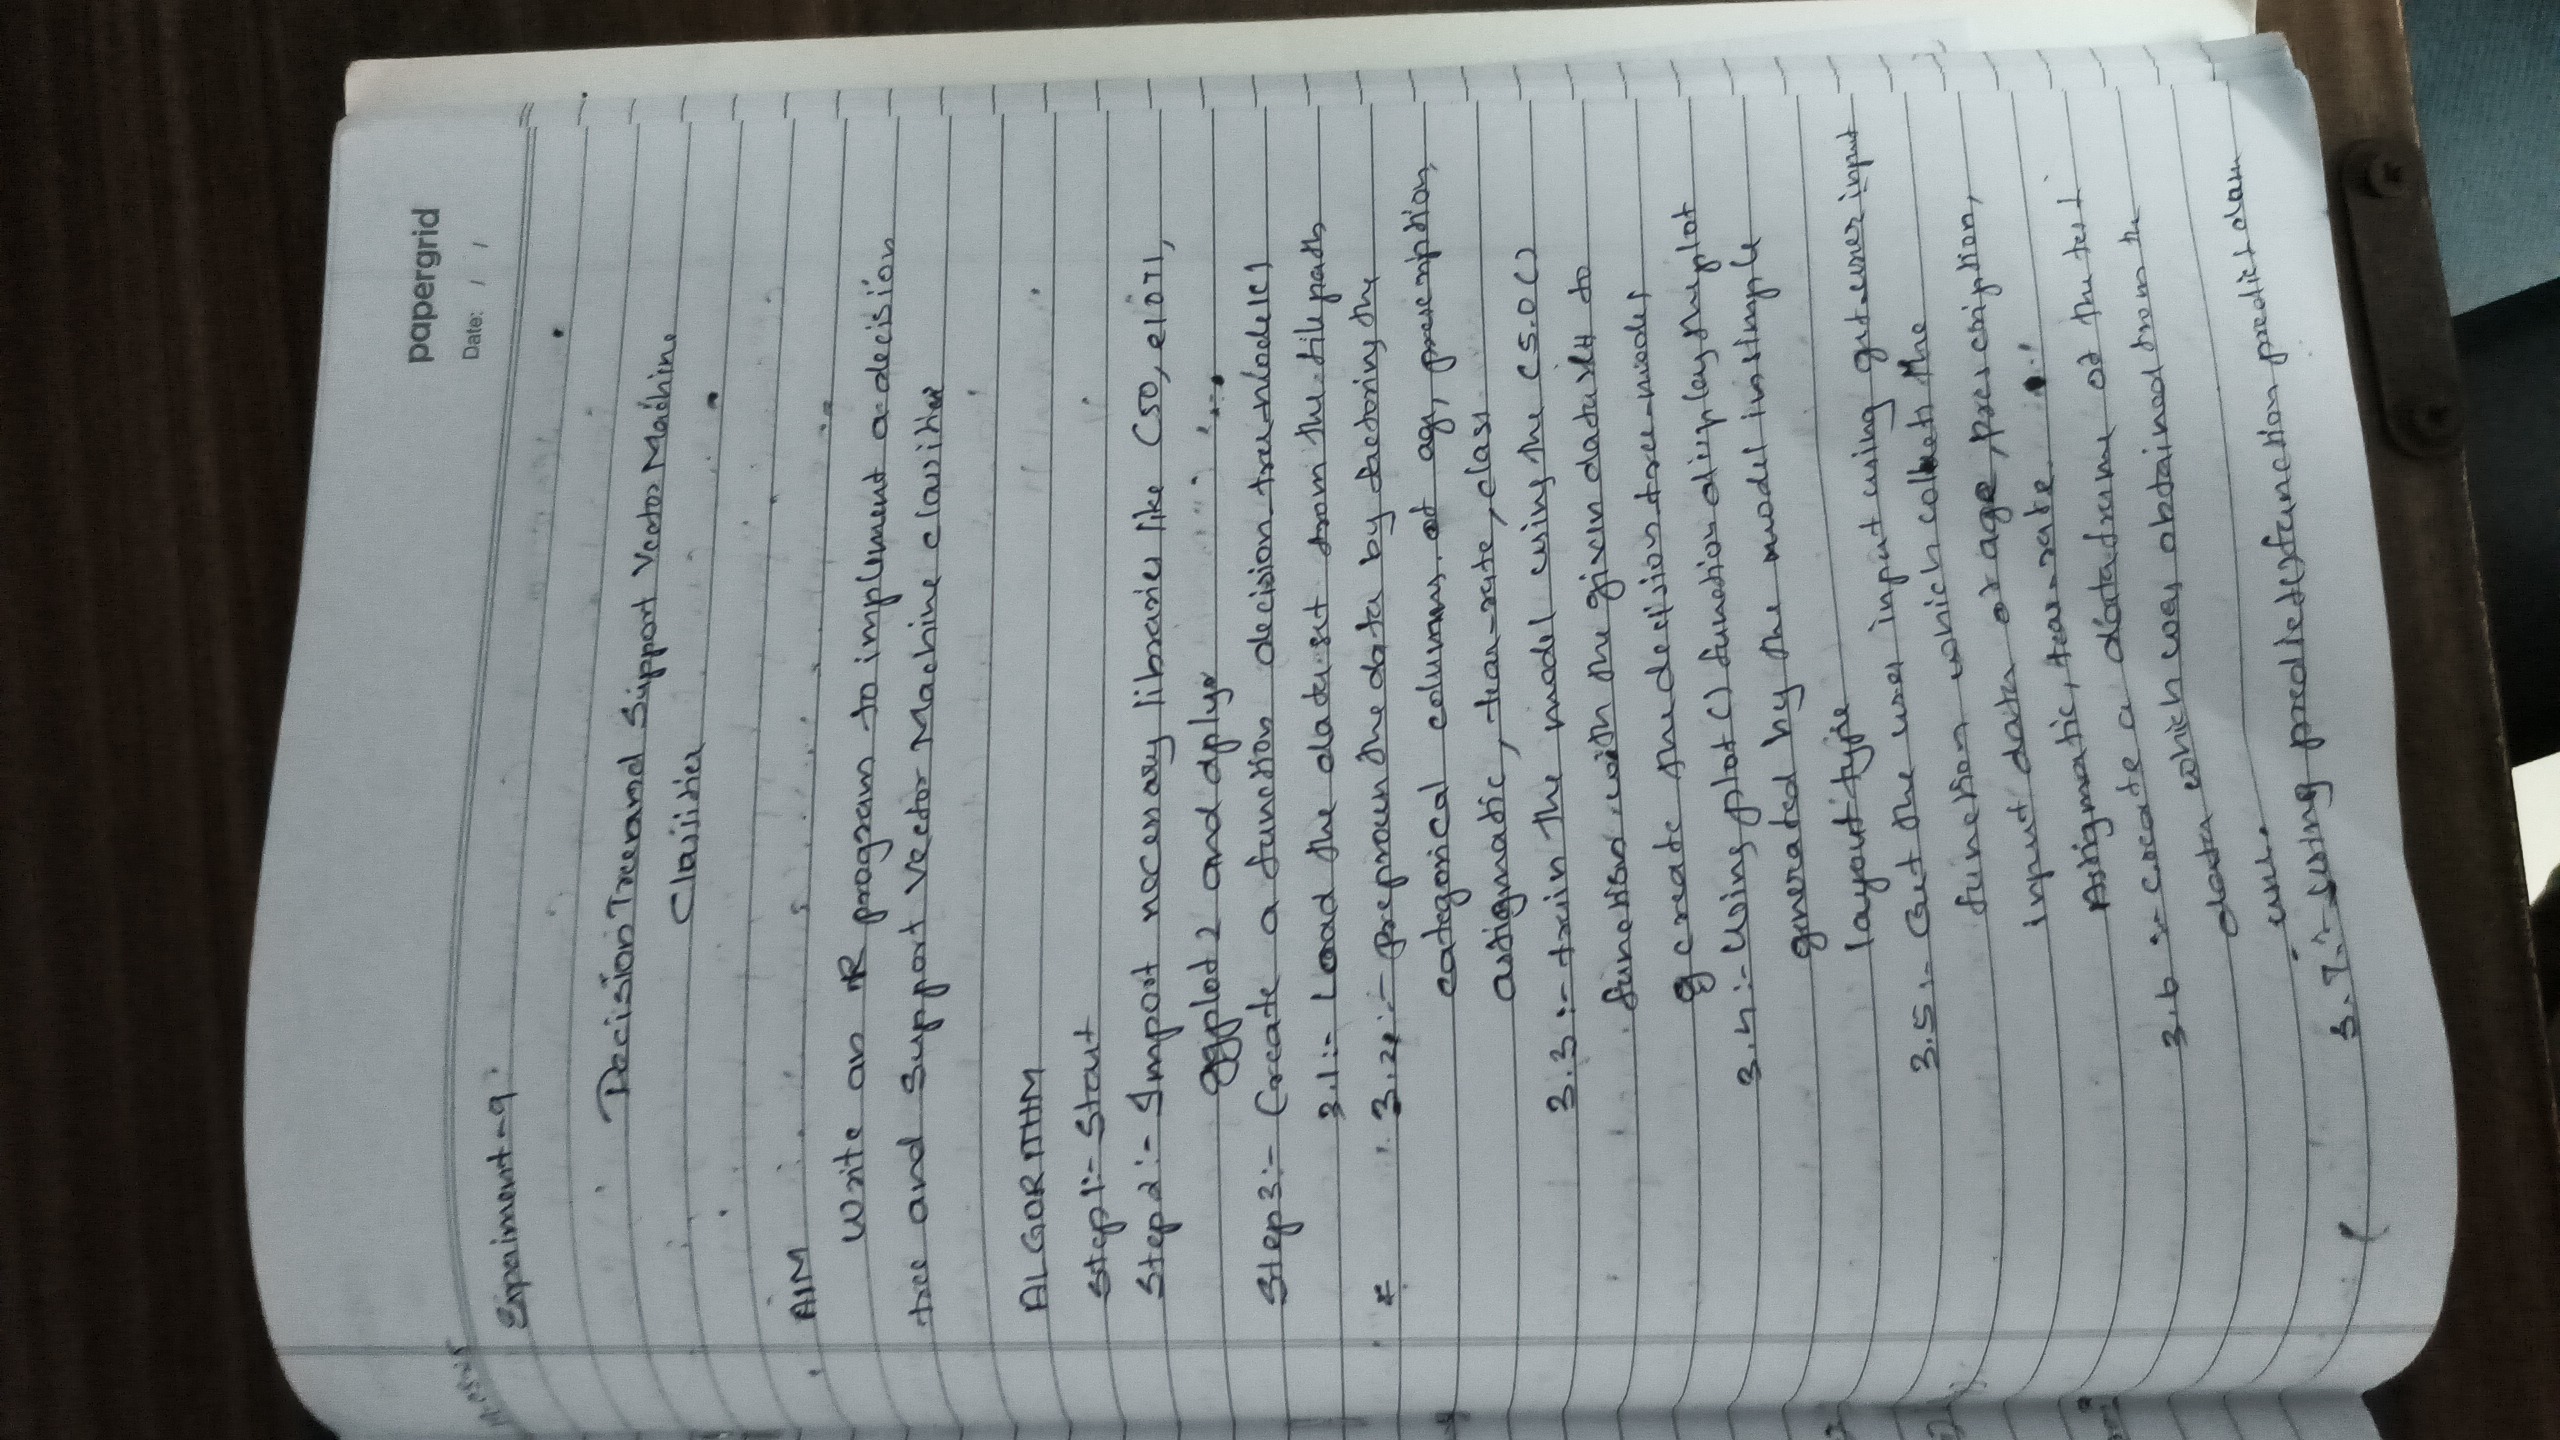 papergrid
Date: / /
Expeiment-9
Decision Tree and Support Vector Machine
Classifier
AIM
Write an R program to implement a decision
tree and Support Vector Machine classifier
ALGORITHM
Step1:- Start
Step2:- Import necessary libraries like C50, e1071,
ggplot2 and dplyr
Step3:- Create a function decision-tree-model()
3.1:- Load the dataset from the file path
3.2:- preproun the data by factoring the
categorical columns of age, prescription,
astigmatic, tear-rate, class
3.3:- train the model using the C5.0()
function with the given dataset to
create the decision-tree-model
3.4:- Using plot() function display the plot
generated by the model in simple
layout type
3.5:- Get the user input using get-user input
function which collects the
input data of age, prescription,
Astigmatic, tear-rate
3.6:- create a dataframe of the test
data which was obtained from the
user.
3.7:- Using predict function predict class